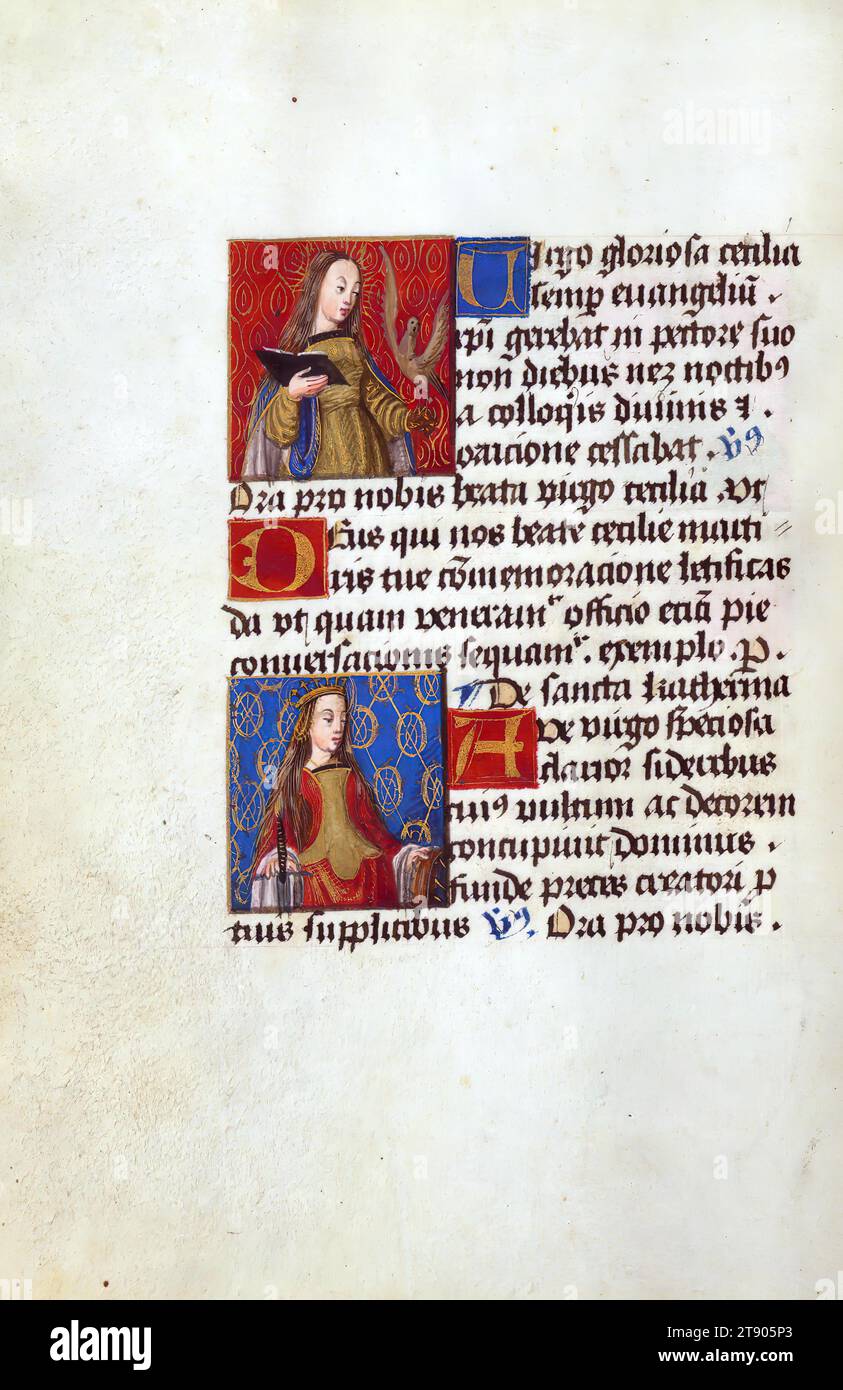 Virgo gloriosa cecilia
semp evangeliū .
xpi gerebat in pectore suo
non diebus nez noctibꝰ
a colloqis divinis ⁊ .
oracione cessabat . Vꝰ
Ora pro nobis beata virgo cecilia . Vt
Deus qui nos beate cecilie marti =
ris tue cōmemoracione letificas
da vt quam veneramʳ officio eciā pie
conversacionis sequamʳ . exemplo . p .
De sancta katherina
Ave virgo speciosa
clarior sideribus
cuiꝰ vultum ac decorem
concupivit dominus .
funde preces creatori p
tuis supplicibus Vꝰ . Ora pro nobis .
alamy
Image ID: 2T905P3
www.alamy.com